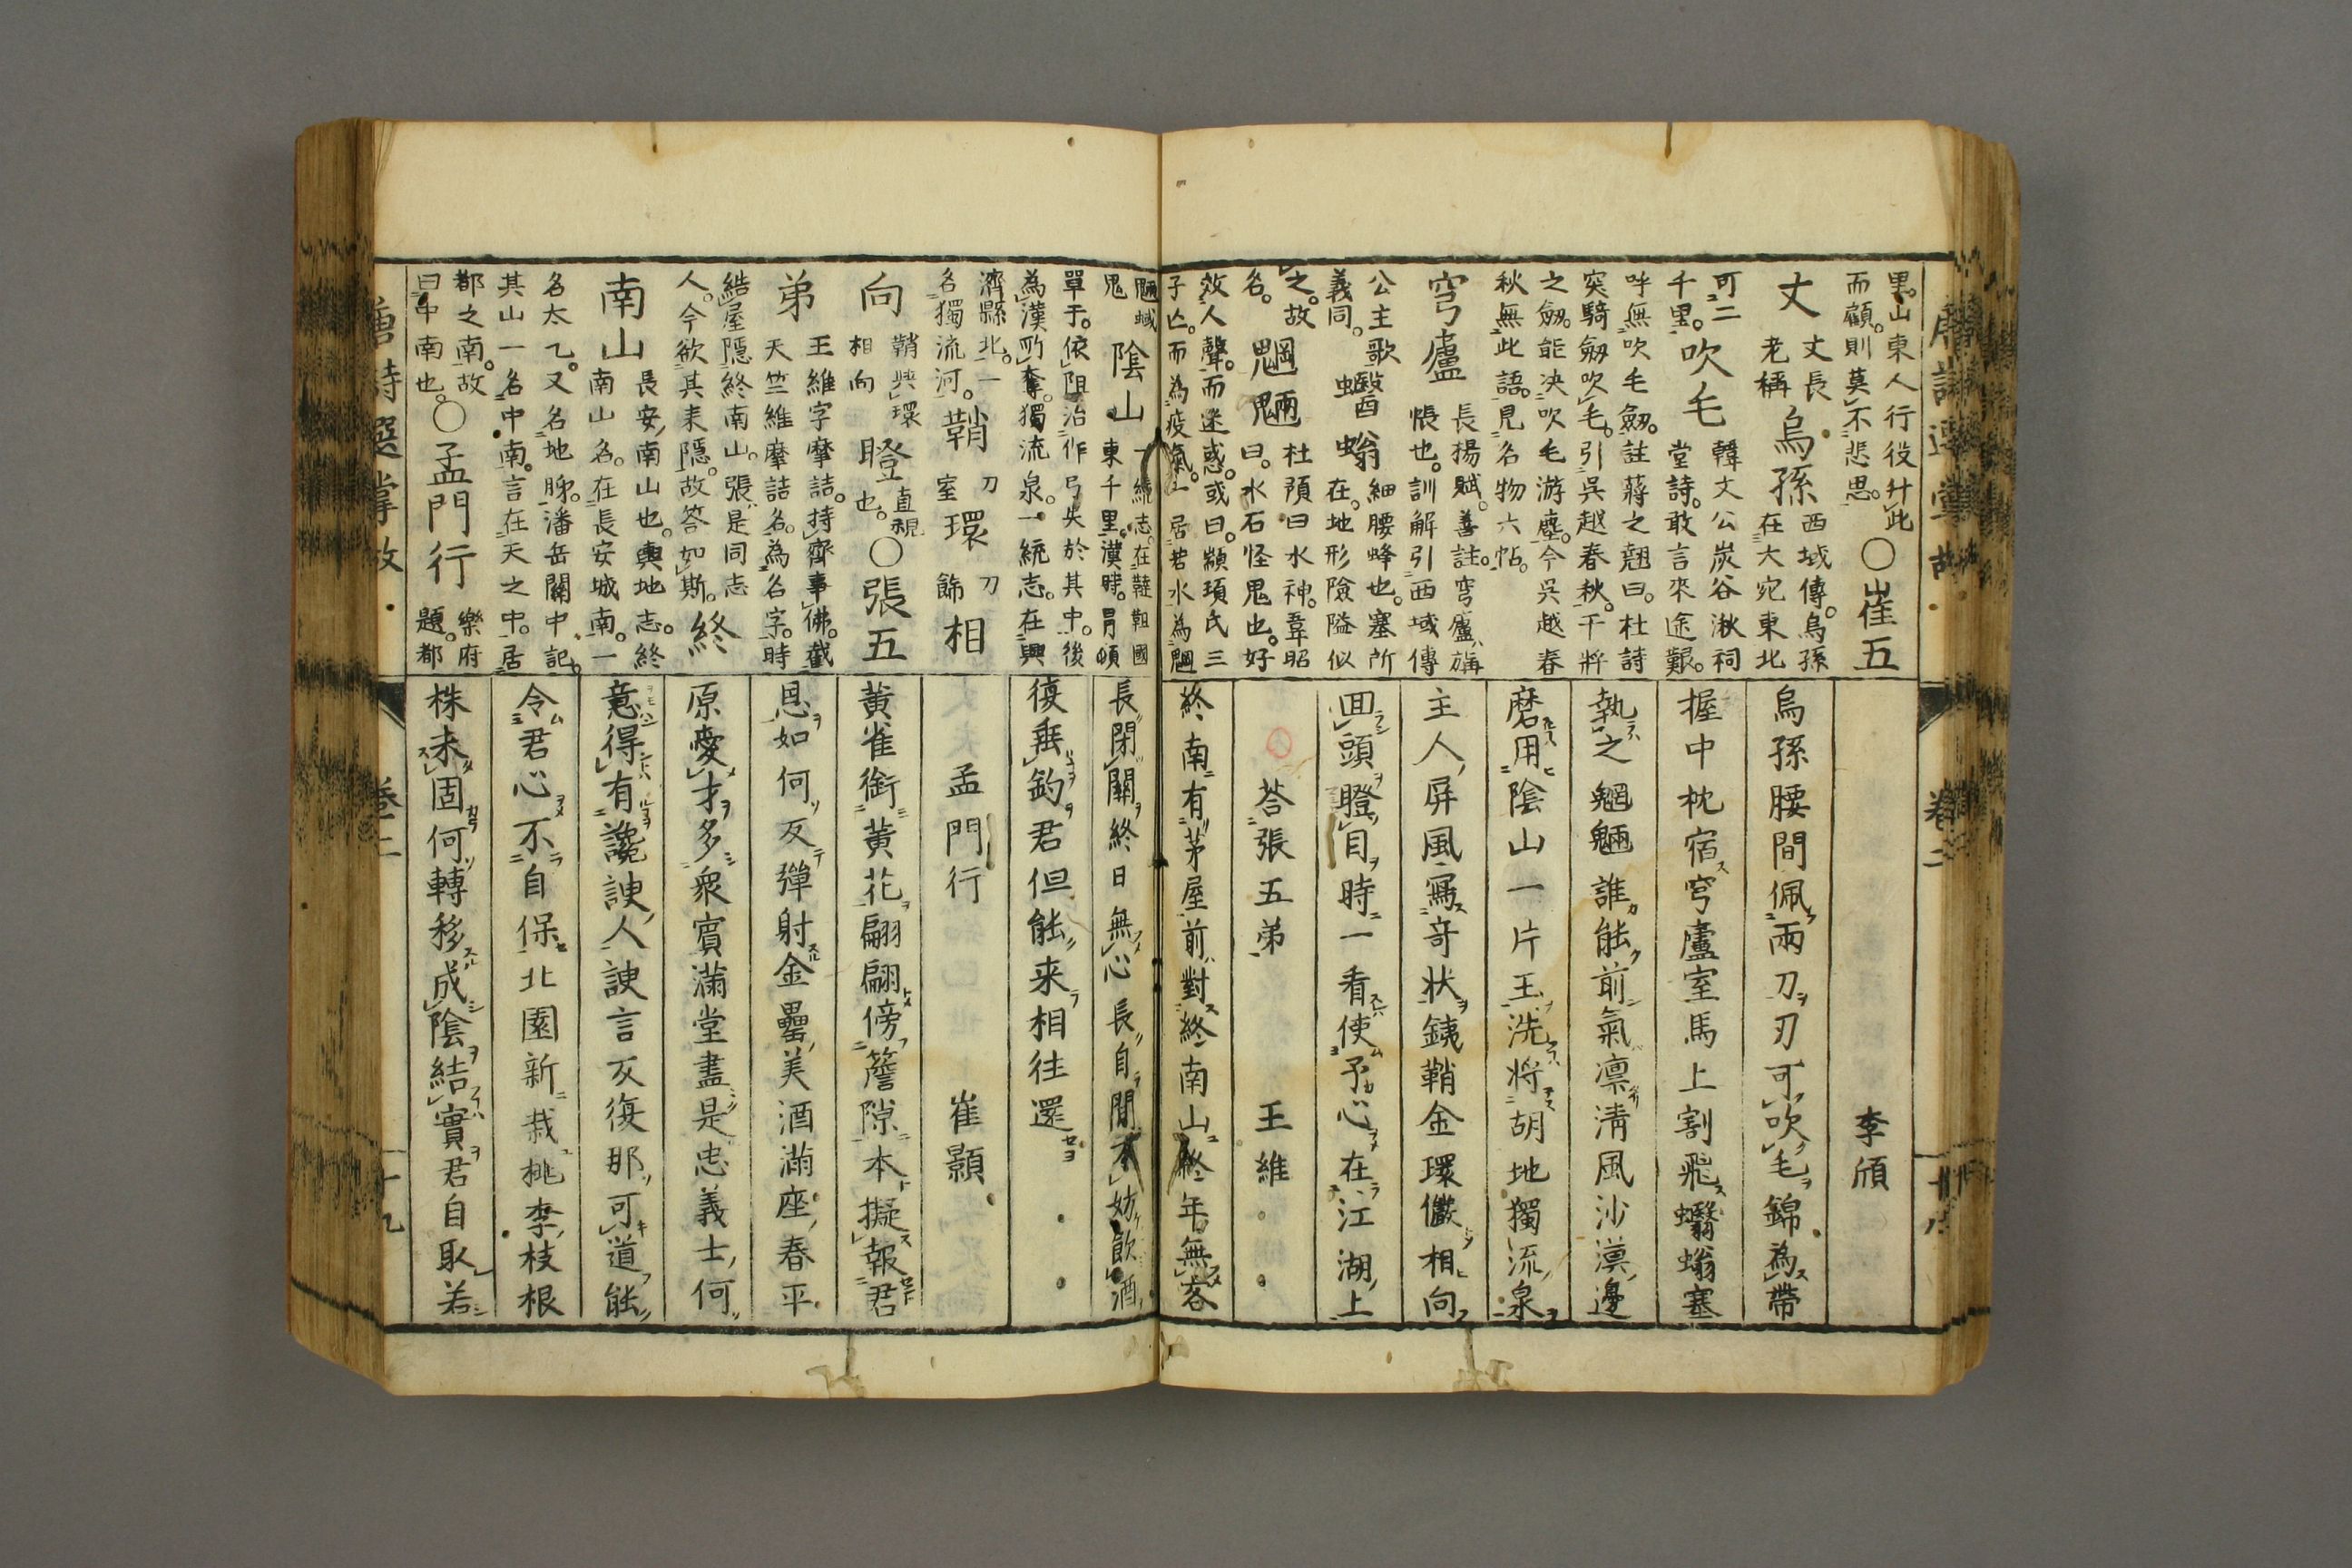 唐詩選掌故 卷二 十八
里。山東人行役升此
而顧。則莫不悲思。
○崔五
丈
丈長
老稱
烏孫
西域傳。烏孫
在大宛東北
可二
千里。
吹毛
韓文公炭谷湫祠
堂詩。敢言來途艱。
呼無吹毛劔。註蔣之翹曰。杜詩
突騎劔吹毛。引吳越春秋。干將
之劔。能決吹毛游塵。今吳越春
秋無此語。見名物六帖。
穹廬
長揚賦。善註。穹廬、旃
帳也。訓解引西域傳
公主歌
義同。
蠮螉
細腰蜂也。塞所
在。地形險隘似
之。故
名。
魍魎
杜預曰水神。韋昭
曰。水石怪鬼也。好
效人聲。而迷惑。或曰。顓頊氏三
子亡。而為疫氣。一居若水為魍
李頎
烏孫腰間佩兩刀刃可吹毛錦為帶
握中枕宿穹廬室馬上割飛蠮螉塞
執之魍魎誰能前氣凛清風沙漠邊
磨用陰山一片玉洗將胡地獨流泉
主人屏風寫奇状銕鞘金環儼相向
囬頭瞪目時一看使予心在江湖上
荅張五弟 王維
終南有茅屋前對終南山終年無客
魎蜮
鬼
陰山
一統志。在韃靼國
東千里。漢時。冒頓
單于。依阻治作弓矢於其中。後
為漢所奪。獨流泉。一統志。在興
濟縣北。一
名獨流河。
鞘
刀
室
環
刀
飾
相
向
鞘與環
相向
瞪
直視
也。
○張五
弟
王維字摩詰。持齋事佛。截
天竺維摩詰名。為名字。時
結屋隱終南山。張是同志
人。今欲其来隱。故答如斯。
終
南山
長安南山也。輿地志。終
南山名。在長安城南。一
名太乙。又名地肺。潘岳關中記。
其山一名中南。言在天之中。居
都之南。故
曰中南也。
○孟門行
樂府
題。都
長閉關終日無心長自閒不妨飲酒
復垂釣君但能来相往還
孟門行 崔顥
黄雀銜黄花翩翩傍簷隙本擬報君
恩如何反彈射金罍美酒滿座春平
原愛才多衆賓滿堂盡是忠義士何
意得有讒諛人諛言反復那可道能
令君心不自保北園新栽桃李枝根
株未固何轉移成陰結實君自取若
唐詩選掌故 卷二 十九